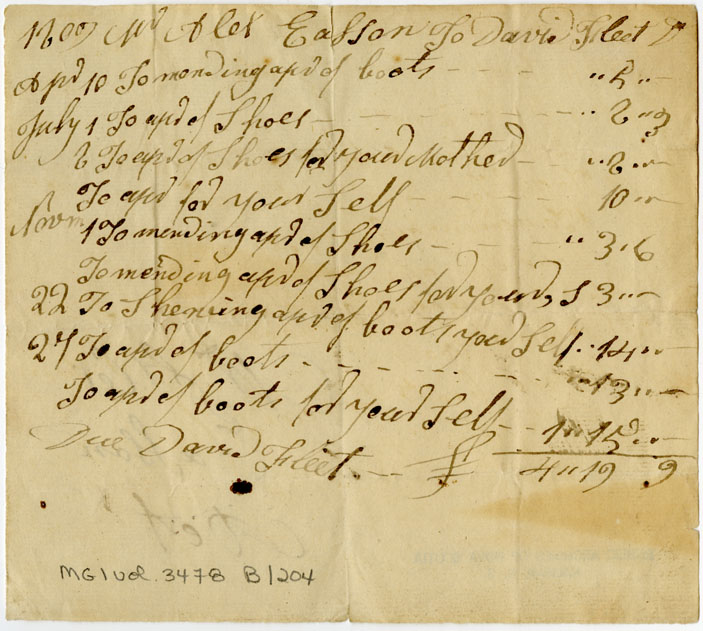 1809 Mr Alex Easson To David Fleet Dr
Apr 10 To mending a pr of boots - - - " 5 " -
July 1 To a pr of Shoes - - - - - " 8 " 3
8 To a pr of Shoes for your Mother - " 8 " -
To a pr for your Self - - - - 10 " -
Novm 1 To mending a pr of Shoes - - " 3 " 6
To mending a pr of Shoes for your S 3 " -
22 To a pr of boots your Self " 14 " -
27 To a pr of boots - - - - - 13 " -
To a pr of boots for your Self - - 1 " 15 " -
Due David Fleet - - £ 4 " 19 9
MG1 vol. 3478 B/204